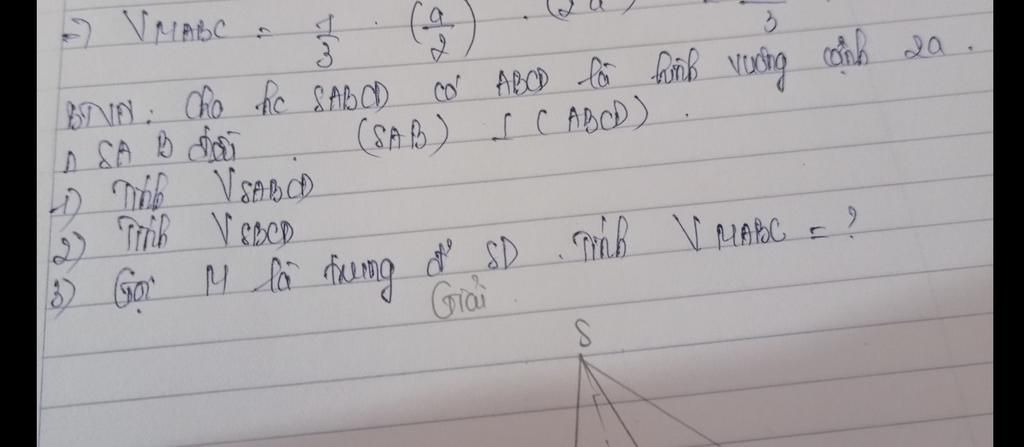 =) VMABC = 1/3 . (a/2) . (2a) 3
BTVN: Cho hc SABCD có ABCD là hình vuông cạnh 2a.
Δ SAB đều. (SAB) ⊥ (ABCD).
1) Tính VSABCD
2) Tính VSBCD
3) Gọi M là trung đ' SD. Tính VMABC = ?
Giải
S